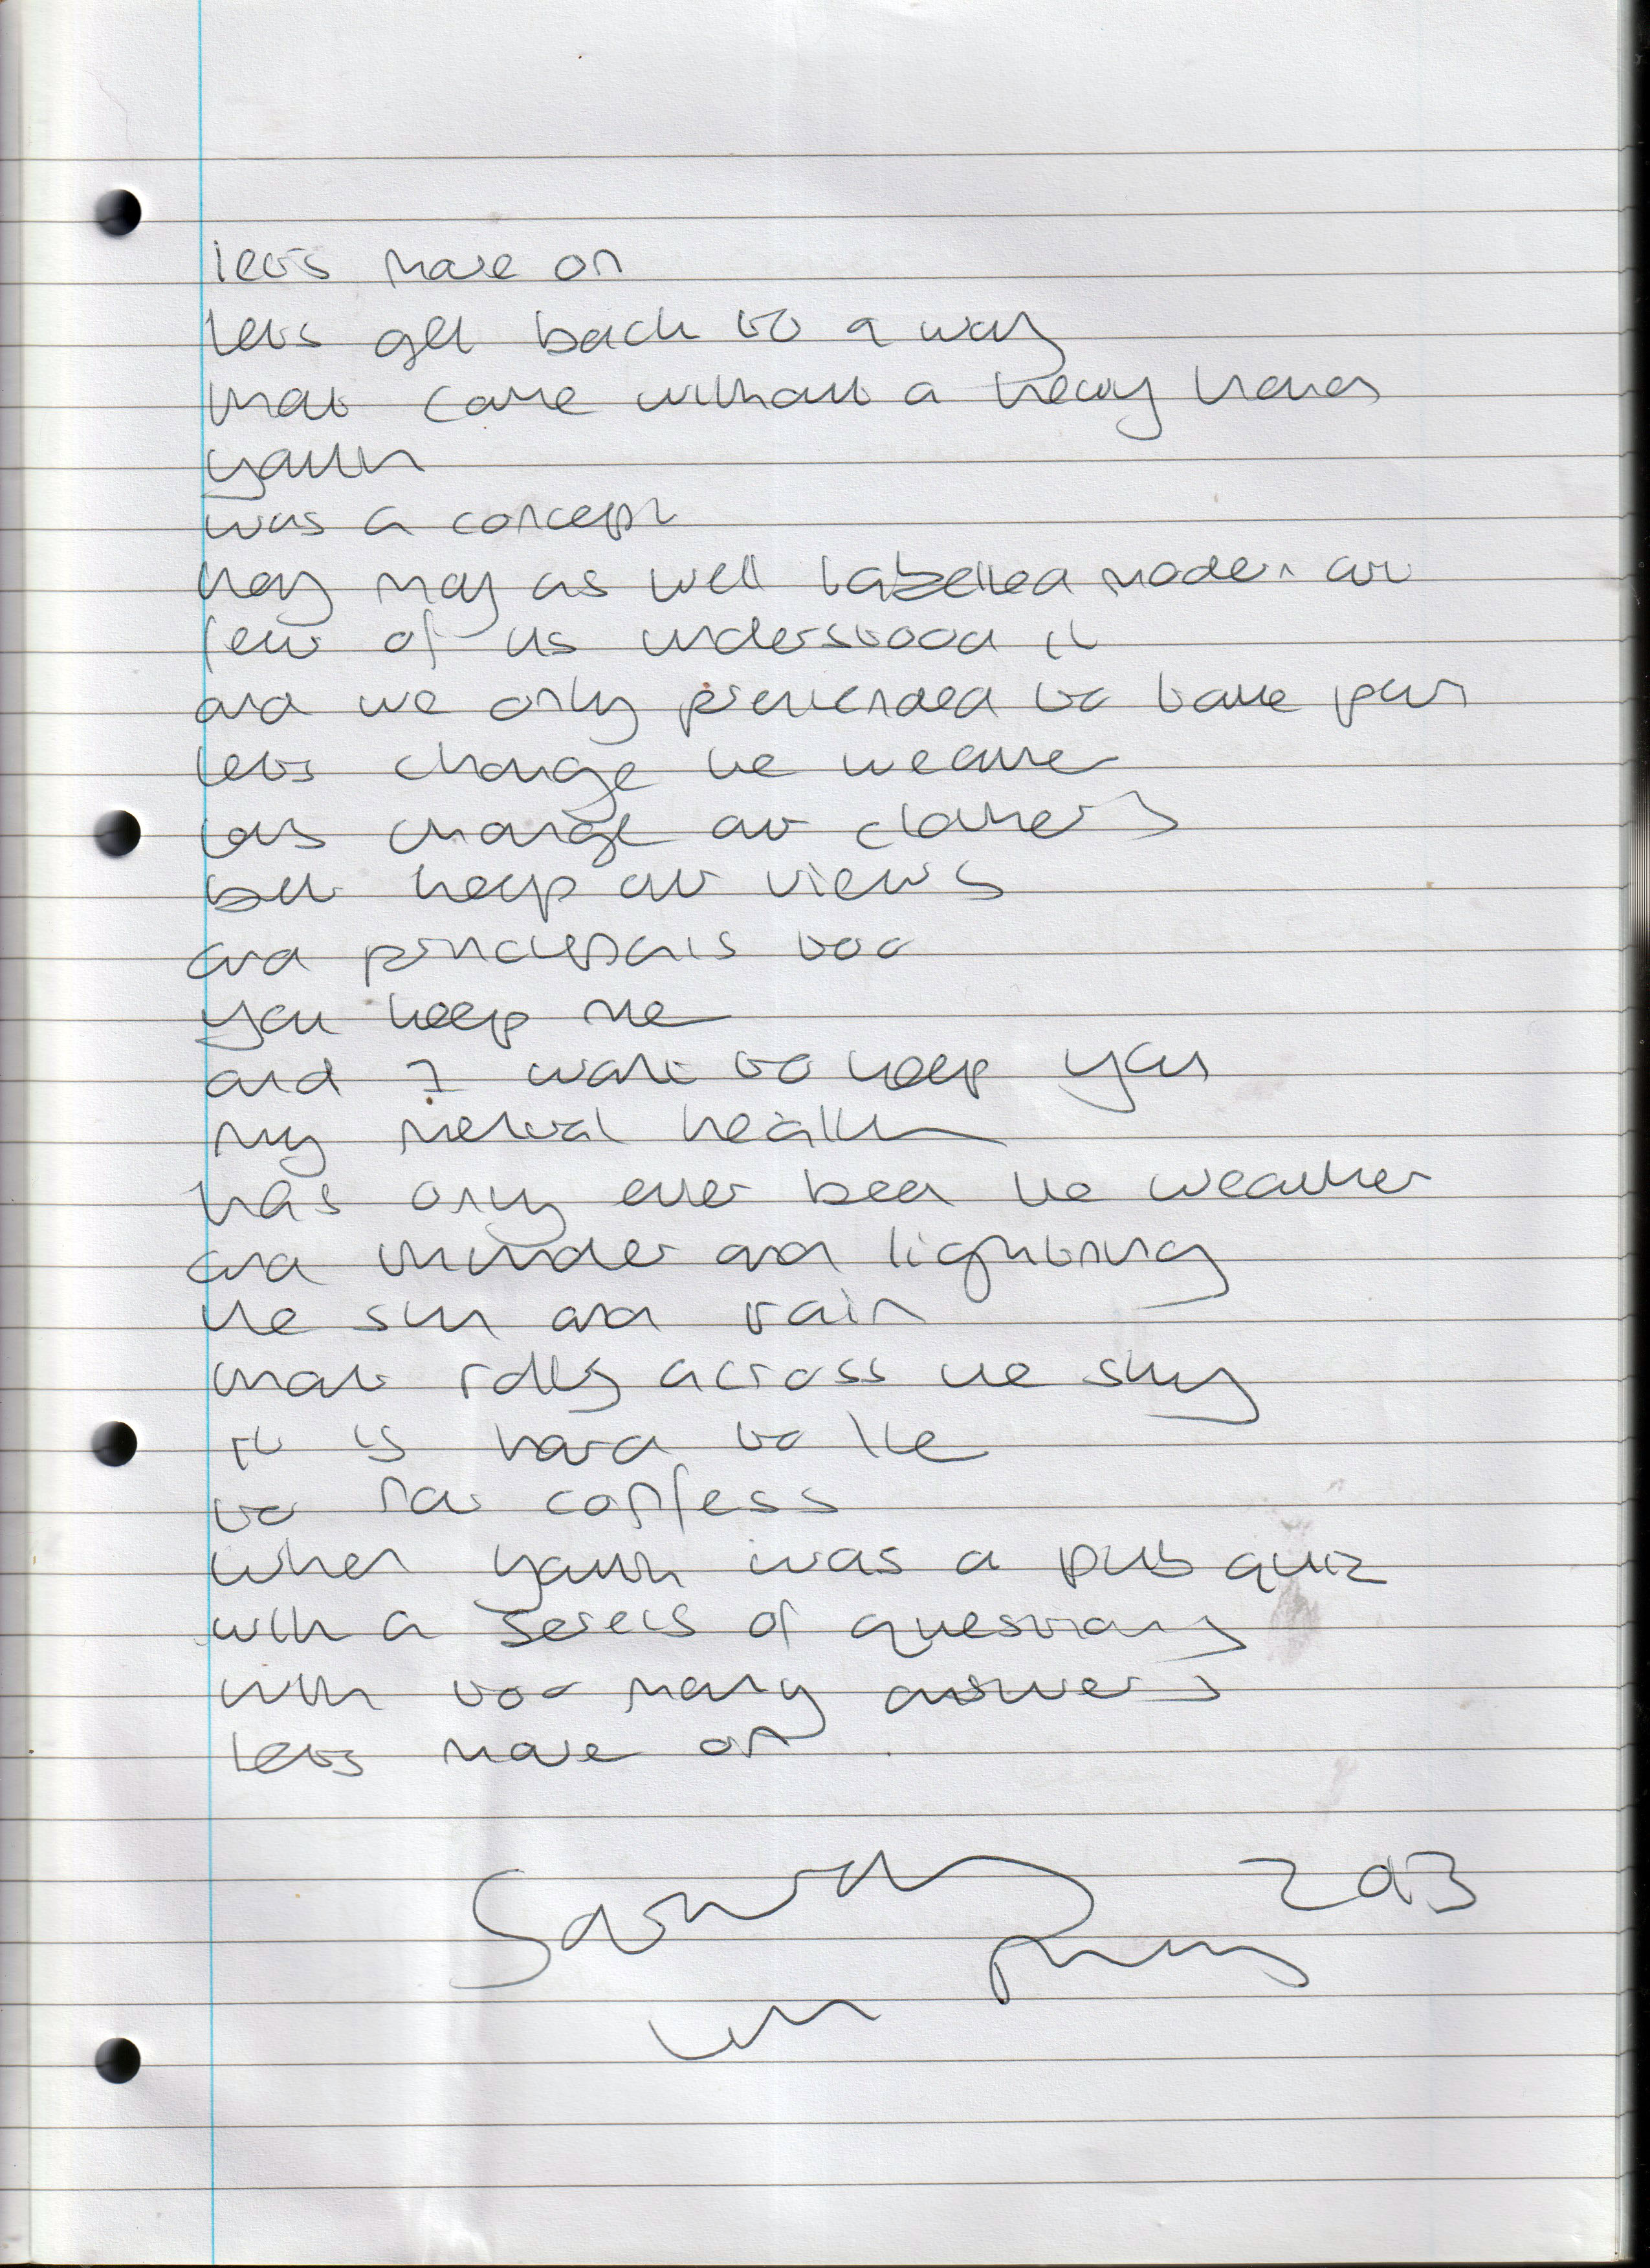 lets move on
lets get back to a way
that came without a heavy heart
youth
was a concept
they may as well labelled modern art
few of us understood it
and we only pretended to take part
lets change the weather
lets change our clothes
but keep our views
and principals too
you keep me
and I want to keep you
my mental health
has only ever been the weather
and thunder and lightning
the sun and rain
that rolls across the sky
it is hard to lie
to not confess
when youth was a pub quiz
with a sereis of questions
with too many answers
lets move on
2013